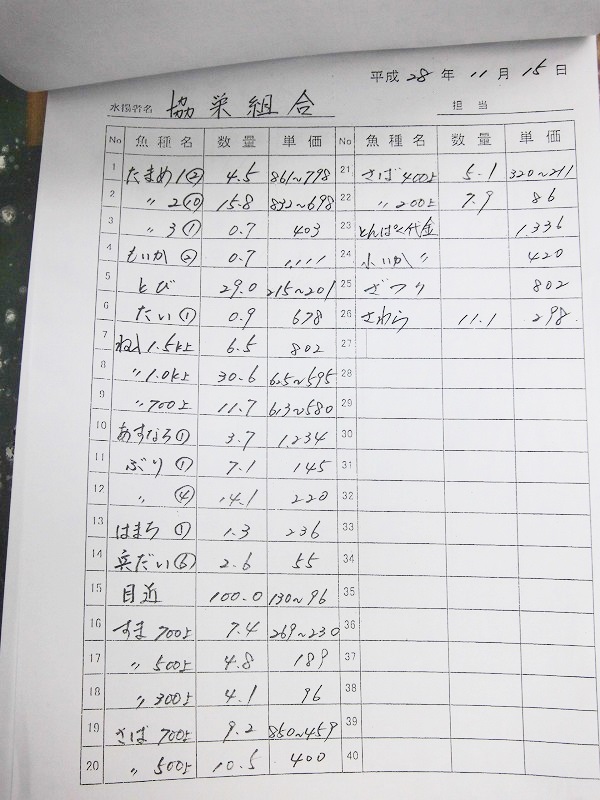 平成 28 年 11 月 15 日
水揚者名 協栄組合 担当
No 魚種名 数量 単価 No 魚種名 数量 単価
1 たまめ1② 4.5 861~798 21 さば400上 5.1 320~211
2 〃2⑩ 15.8 832~698 22 〃200上 7.9 86
3 〃3① 0.7 403 23 とんぼ代金 1,336
4 もいか② 0.7 1,111 24 小いか〃 420
5 とび 29.0 215~201 25 ざつり 802
6 たい① 0.9 678 26 さわら 11.1 298
7 ねいり1.5k上 6.5 802 27
8 〃1.0k上 30.6 625~595 28
9 〃700上 11.7 613~580 29
10 あすなろ① 3.7 1,234 30
11 ぶり① 7.1 145 31
12 〃④ 14.1 220 32
13 はまち① 1.3 236 33
14 兵だい⑥ 2.6 55 34
15 目近 100.0 130~96 35
16 すま700上 7.4 269~230 36
17 〃500上 4.8 189 37
18 〃300上 4.1 96 38
19 さば700上 9.2 850~459 39
20 〃500上 10.5 400 40